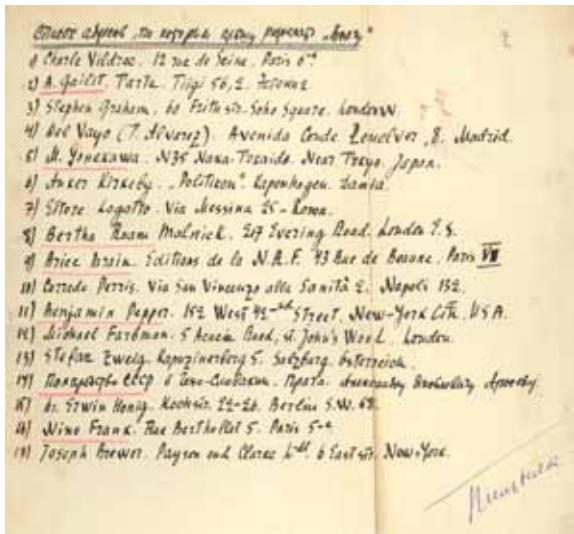 Список адресов, по которым прошу переслать „
1) Charle Vildrac. 12 rue de Seine. Paris 6me
2) A. Gailit. Tartu. Tiigi 56, 2.
3) Stephen Graham, 60 Frith str. Soho Square. London W.
4) Del Vayo (T. Alvarez). Avenida Conde 8. Madrid.
5) M. Yonekawa. N35 Naka. Near Tokyo. Japan.
6) Anker Kirkeby. „Politiken". Kopenhagen. Dania
7) Ettore Logatto. Via Messina 25 - Roma.
8) Bertha Malnick. 207 Evering Road. London E. 5.
9) Brice Parain. Editions de la N.R.F. 43 Rue de Beaune. Paris VII
10) Corrado Perris. Via San Vincenzo alla Sanità 2. Napoli 132.
11) Benjamin Pepper. 152 West 42-nd Street. New-York City. USA.
12) Michael Farbman. 5 Acacia Road, St. John's Wood. London.
13) Stefan Zweig. Kapuzinerberg 5. Salzburg. Österreich.
14) Полпредство СССР в Чехо-Словакии. Прага.
15) Dr. Erwin Honig. Kochstr. 22-26. Berlin S.W. 68.
16) Nino Frank. Rue Berthollet 5. Paris 5-e
17) Joseph Brewer. Payson and Clarke Ltd. 6 East str. New-York.